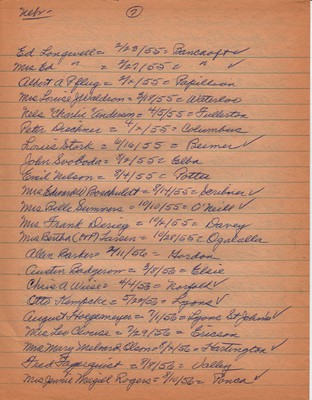 Nebr- 2
Ed Longwell = 2/23/55 = Bancroft ✓
Mrs Ed " = 2/27/55 = " ✓
Albert A Pflug = 3/2/55 = Papillion
Mrs Louise J Waldron = 3/18/55 = Waterloo
Nels Charlie Anderson = 4/5/55 = Fullerton
Peter = 4/2/55 = Columbus
Louis Stork = 6/16/55 = Beemer ✓
John Svoboda = 7/2/55 = Elba
Emil Nelson = 8/4/55 = Potter
Mrs Edward W = 8/17/55 = Scribner ✓
Mrs Belle Summers = 10/10/55 = O'Neill ✓
Mrs Frank = 10/2/55 = Davey
Mrs Bertha (HP) Larsen = 10/28/55 = Ogalalla
Allen Parker = 2/11/56 = Gordon
Austin Rodgerom = 3/8/56 = Elsie
Chris A Wiese = 4/4/56 = Norfolk ✓
Otto Kempcke = 5/20/56 = Lyons ✓
August Hoegemeyer = 7/1/56 = Lyons St Johns ✓
Mrs Leo Clouse = 7/29/56 = Ericson
Mrs Mary Melnora Olson = 8/2/56 = Hartington ✓
Fred Fagerquist = 9/8/56 = Valley
Mrs Jennie Rogers = 9/10/56 = Ponca ✓